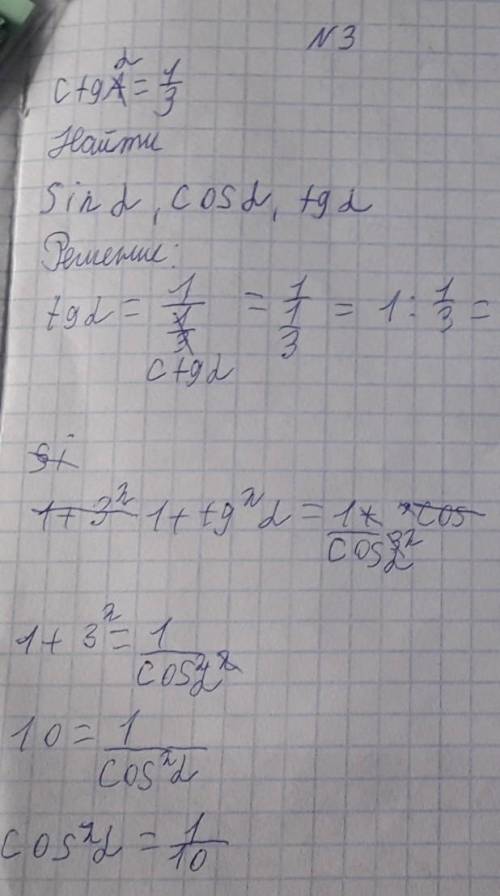 N3
ctg α = 1/3
Найти
sin α, cos α, tg α
Решение:
tg α = 1/ctg α = 1/(1/3) = 1 : 1/3 =
si
1 + 3² 1 + tg² α = 1/cos² α
1 + 3² = 1/cos² α
10 = 1/cos² α
cos² α = 1/10